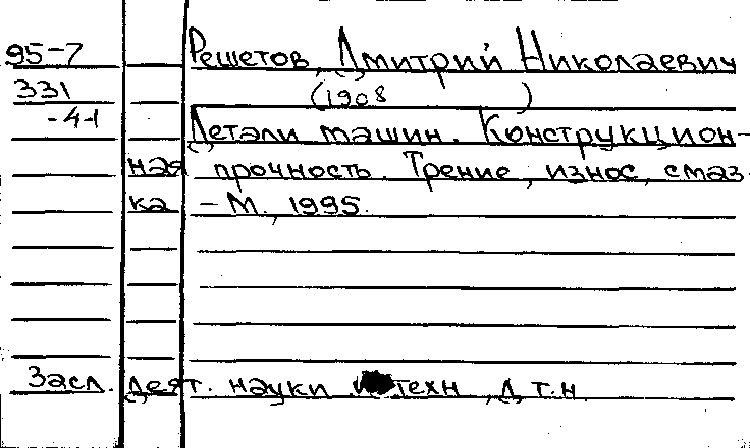 95-7 Решетов, Дмитрий Николаевич
331 (1908 )
-4-1 Детали машин. Конструкцион-
ная прочность. Трение, износ, смаз-
ка - М., 1995.
Засл. деят. науки и техн., д.т.н.